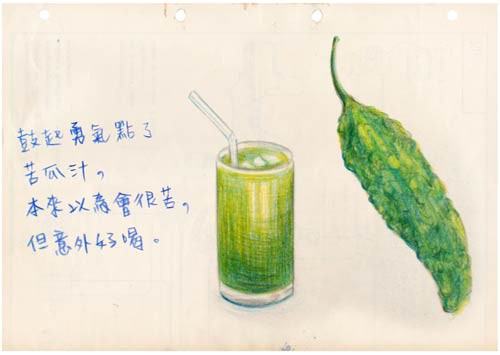 鼓起勇氣點了
苦瓜汁,
本來以為會很苦,
但意外好喝。